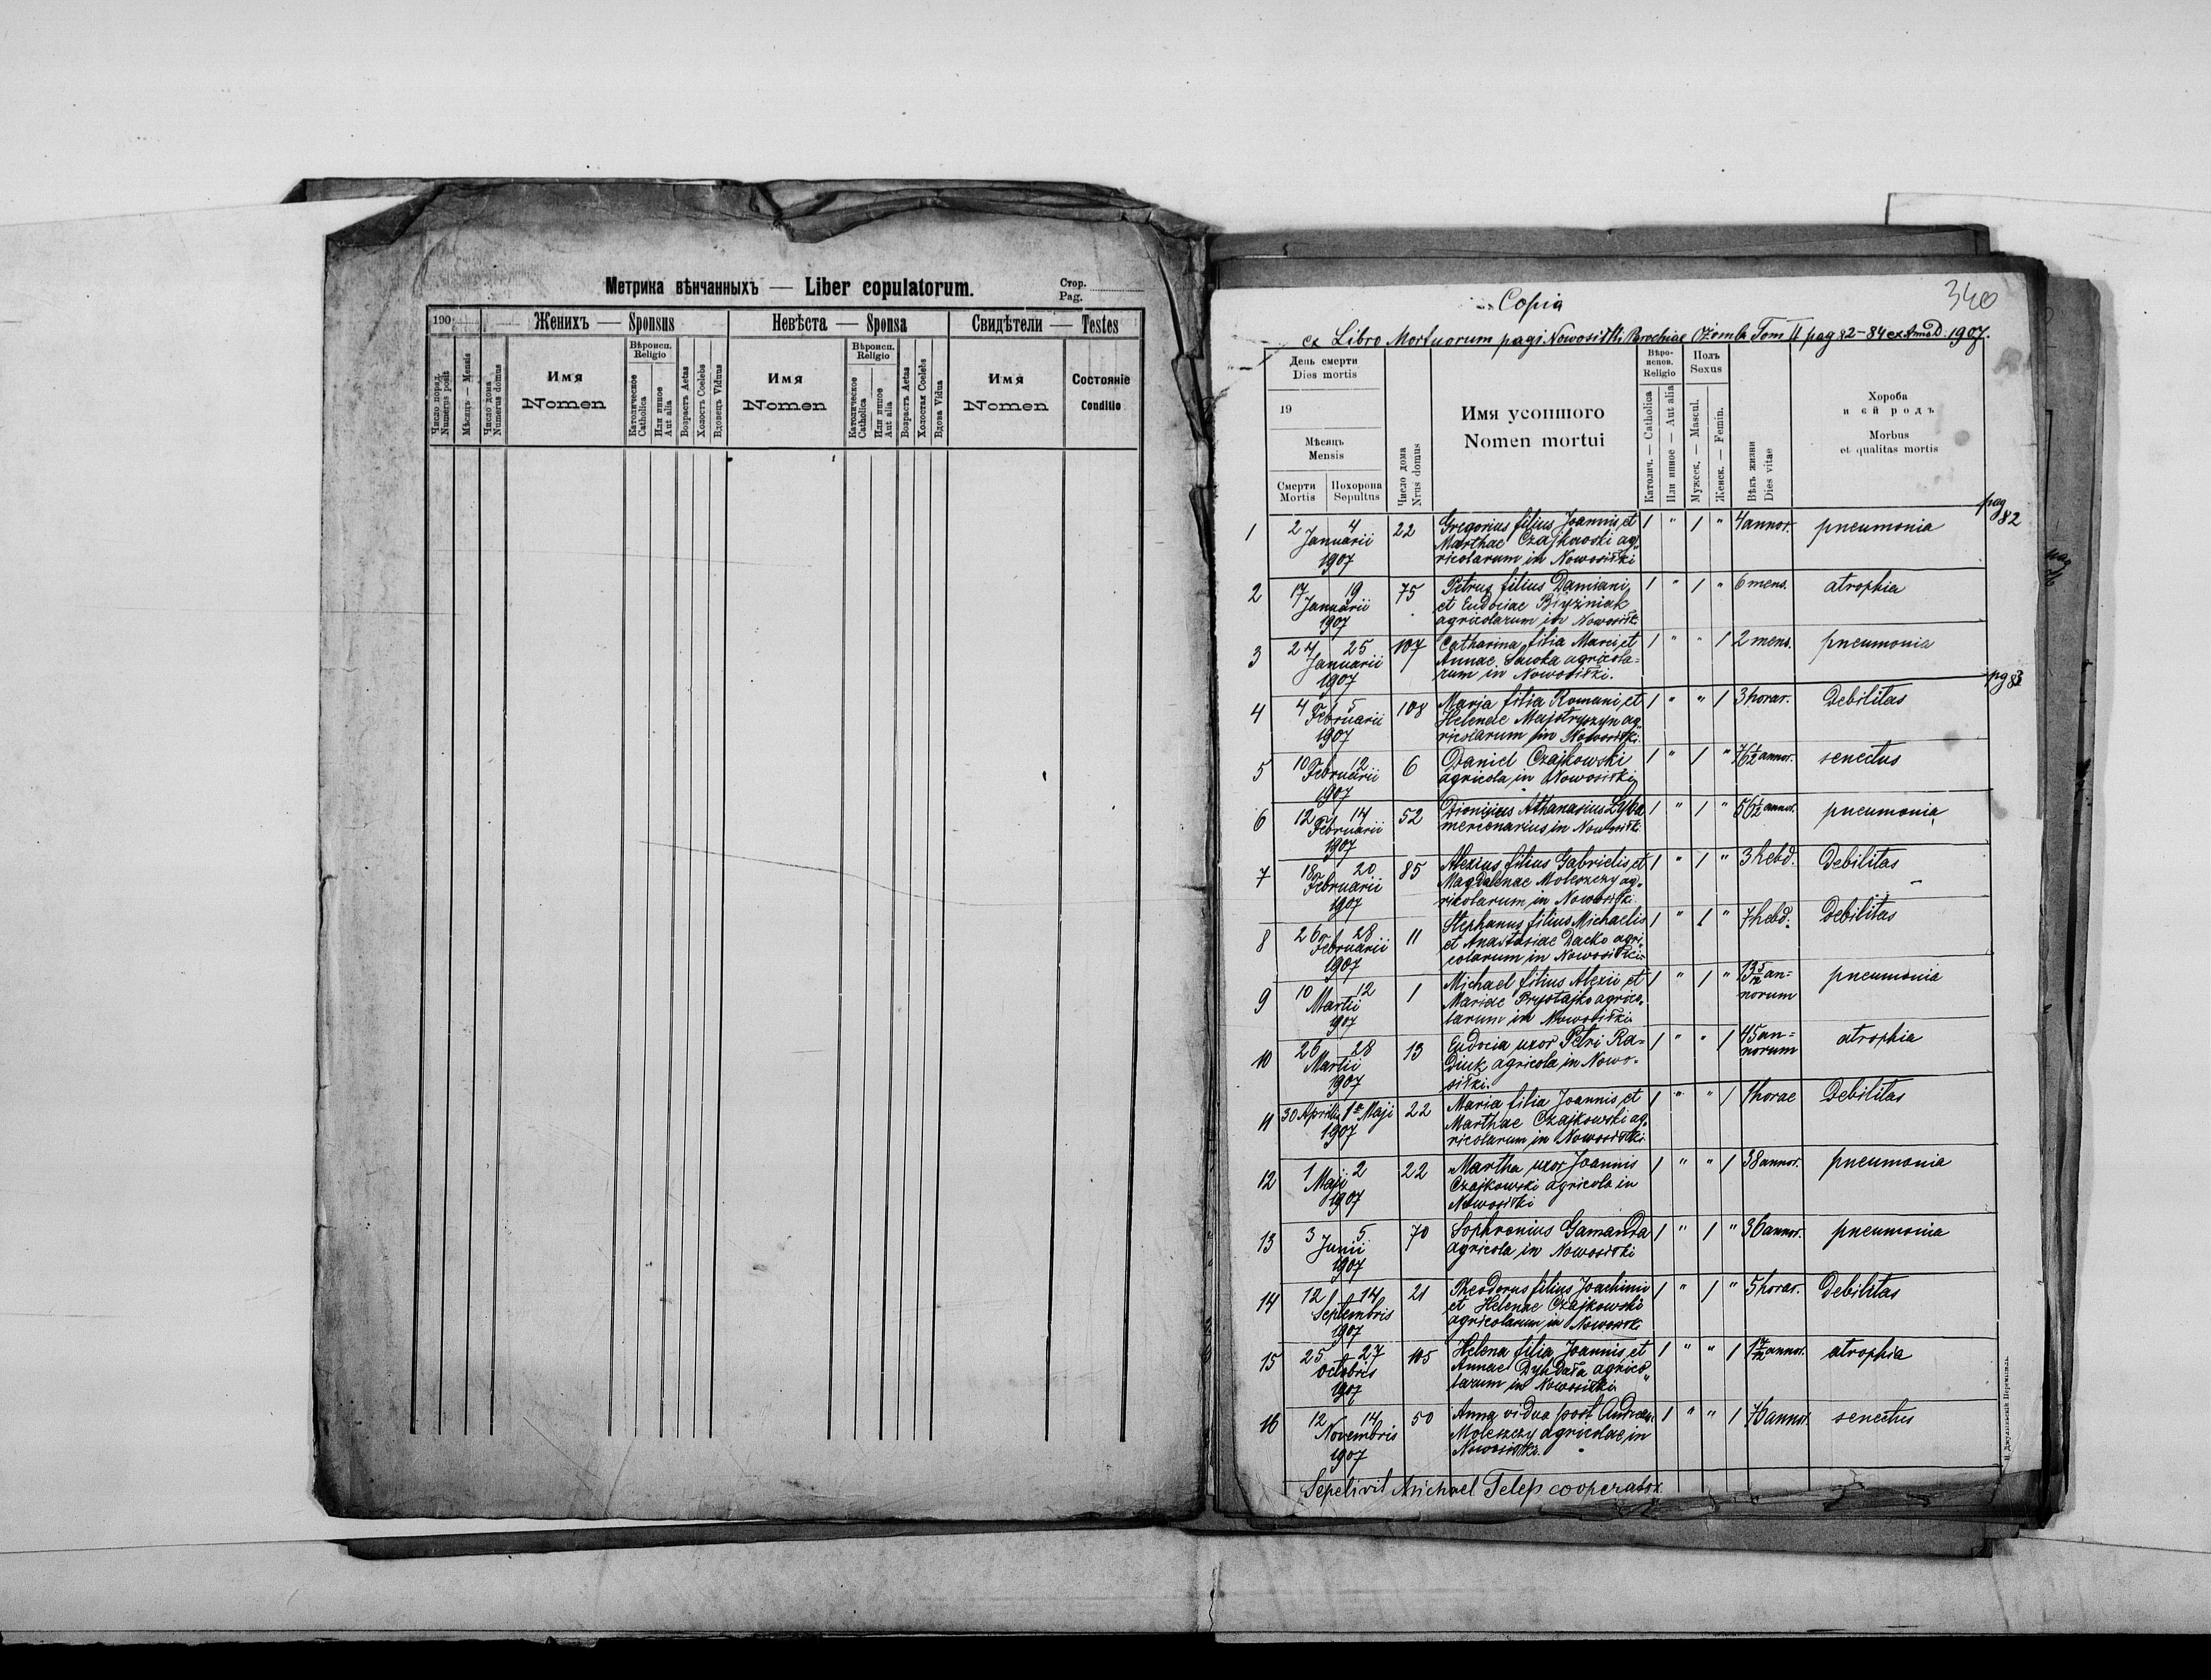 Метрика вѣнчанныхъ — Liber copulatorum.
Стор.
Pag.
190
Женихъ — Sponsus
Невѣста — Sponsa
Свидѣтели — Testes
Число поряд.
Numerus posit
Мѣсяць — Mensis
Число дома
Numerus domus
Имя
Nomen
Вѣроисп.
Religio
Католическое
Catholica
Или инное
Aut alia
Возрастъ Aetas
Холостъ Coelebs
Вдовець Viduus
Имя
Nomen
Вѣроисп.
Religio
Католическое
Catholica
Или инное
Aut alia
Возрастъ Aetas
Холостая Coelebs
Вдова Vidua
Имя
Nomen
Состояніе
Conditio
340
Copia
ex Libro Mortuorum pagi Nowosiłki Parochiae Tom II pag 82-84 ex Anno D. 1907.
День смерти
Dies mortis
19
Мѣсяць
Mensis
Смерти
Mortis
Похорона
Sepultus
Число дома
Nrus domus
Имя усопшого
Nomen mortui
Вѣро-
испов.
Religio
Католич. — Catholica
Или инное — Aut alia
Полъ
Sexus
Мужеск. — Mascul.
Женск. — Femin.
Вѣкъ жизни
Dies vitae
Хороба
и єй родъ
Morbus
et qualitas mortis
pag 82
1 2 4 22 Gregorius filius Joannis et 1 " 1 " 4 annor. pneumonia
Januarii Marthae Czajkowski ag-
1907 ricolarum in Nowosiłki
2 17 19 75 Petrus filius Damiani 1 " 1 " 6 mens. atrophia
Januarii et Eudociae
1907 agricolarum in Nowosiłki
3 24 25 107 Catharina filia Marci et 1 " " 1 2 mens. pneumonia
Januarii Annae Sawka agricola-
1907 rum in Nowosiłki.
pg 83
4 4 5 108 Maria filia Romani et 1 " " 1 3 horar. Debilitas
Februarii Helenae Majstryszyn ag-
1907 ricolarum in Nowosiłki.
5 10 12 6 Daniel Czajkowski 1 " 1 " 76 1/2 annor. senectus
Februarii agricola in Nowosiłki
1907
6 12 14 52 Dionisius Athanasius Zyba 1 " 1 " 56 1/2 annor. pneumonia
Februarii mercenarius in Nowosiłki
1907
7 18 20 85 Alexius filius Gabrielis et 1 " 1 " 3 hebd. Debilitas
Februarii Magdalenae Moleszczy ag-
1907 ricolarum in Nowosiłki.
8 26 28 11 Stephanus filius Michaelis 1 " 1 " 7 hebd. Debilitas
Februarii et Anastasiae Dacko agri-
1907 colarum in Nowosiłki
9 10 12 1 Michael filius Alexii et 1 " 1 " 13 5/12 an- pneumonia
Martii Mariae Prystajko agrico- norum
1907 larum in Nowosiłki
10 26 28 13 Eudocia uxor Petri Ra- 1 " " 1 45 an- atrophia
Martii diuk agricola in Nowo- norum
1907 siłki.
11 30 Aprilis 1 Maji 22 Maria filia Joannis et 1 " " 1 1 horae Debilitas
1907 Marthae Czajkowski ag-
ricolarum in Nowosiłki
12 1 2 22 Martha uxor Joannis 1 " " 1 38 annor. pneumonia
Maji Czajkowski agricola in
1907 Nowosiłki
13 3 5 70 Sophronius Gamanda 1 " 1 " 36 annor. pneumonia
Junii agricola in Nowosiłki
1907
14 12 14 21 Theodorus filius Joachimi 1 " 1 " 5 horar. Debilitas
Septembris et Helenae Czajkowski
1907 agricolarum in Nowosiłki
15 25 27 105 Helena filia Joannis et 1 " " 1 1 7/12 annor. atrophia
Octobris Annae Dyhdała agrico-
1907 larum in Nowosiłki
16 12 14 50 Anna vidua post Andream 1 " " 1 76 annor senectus
Novembris Moleszczy agricolae in
1907 Nowosiłki.
Sepelivit Michael Telep cooperator